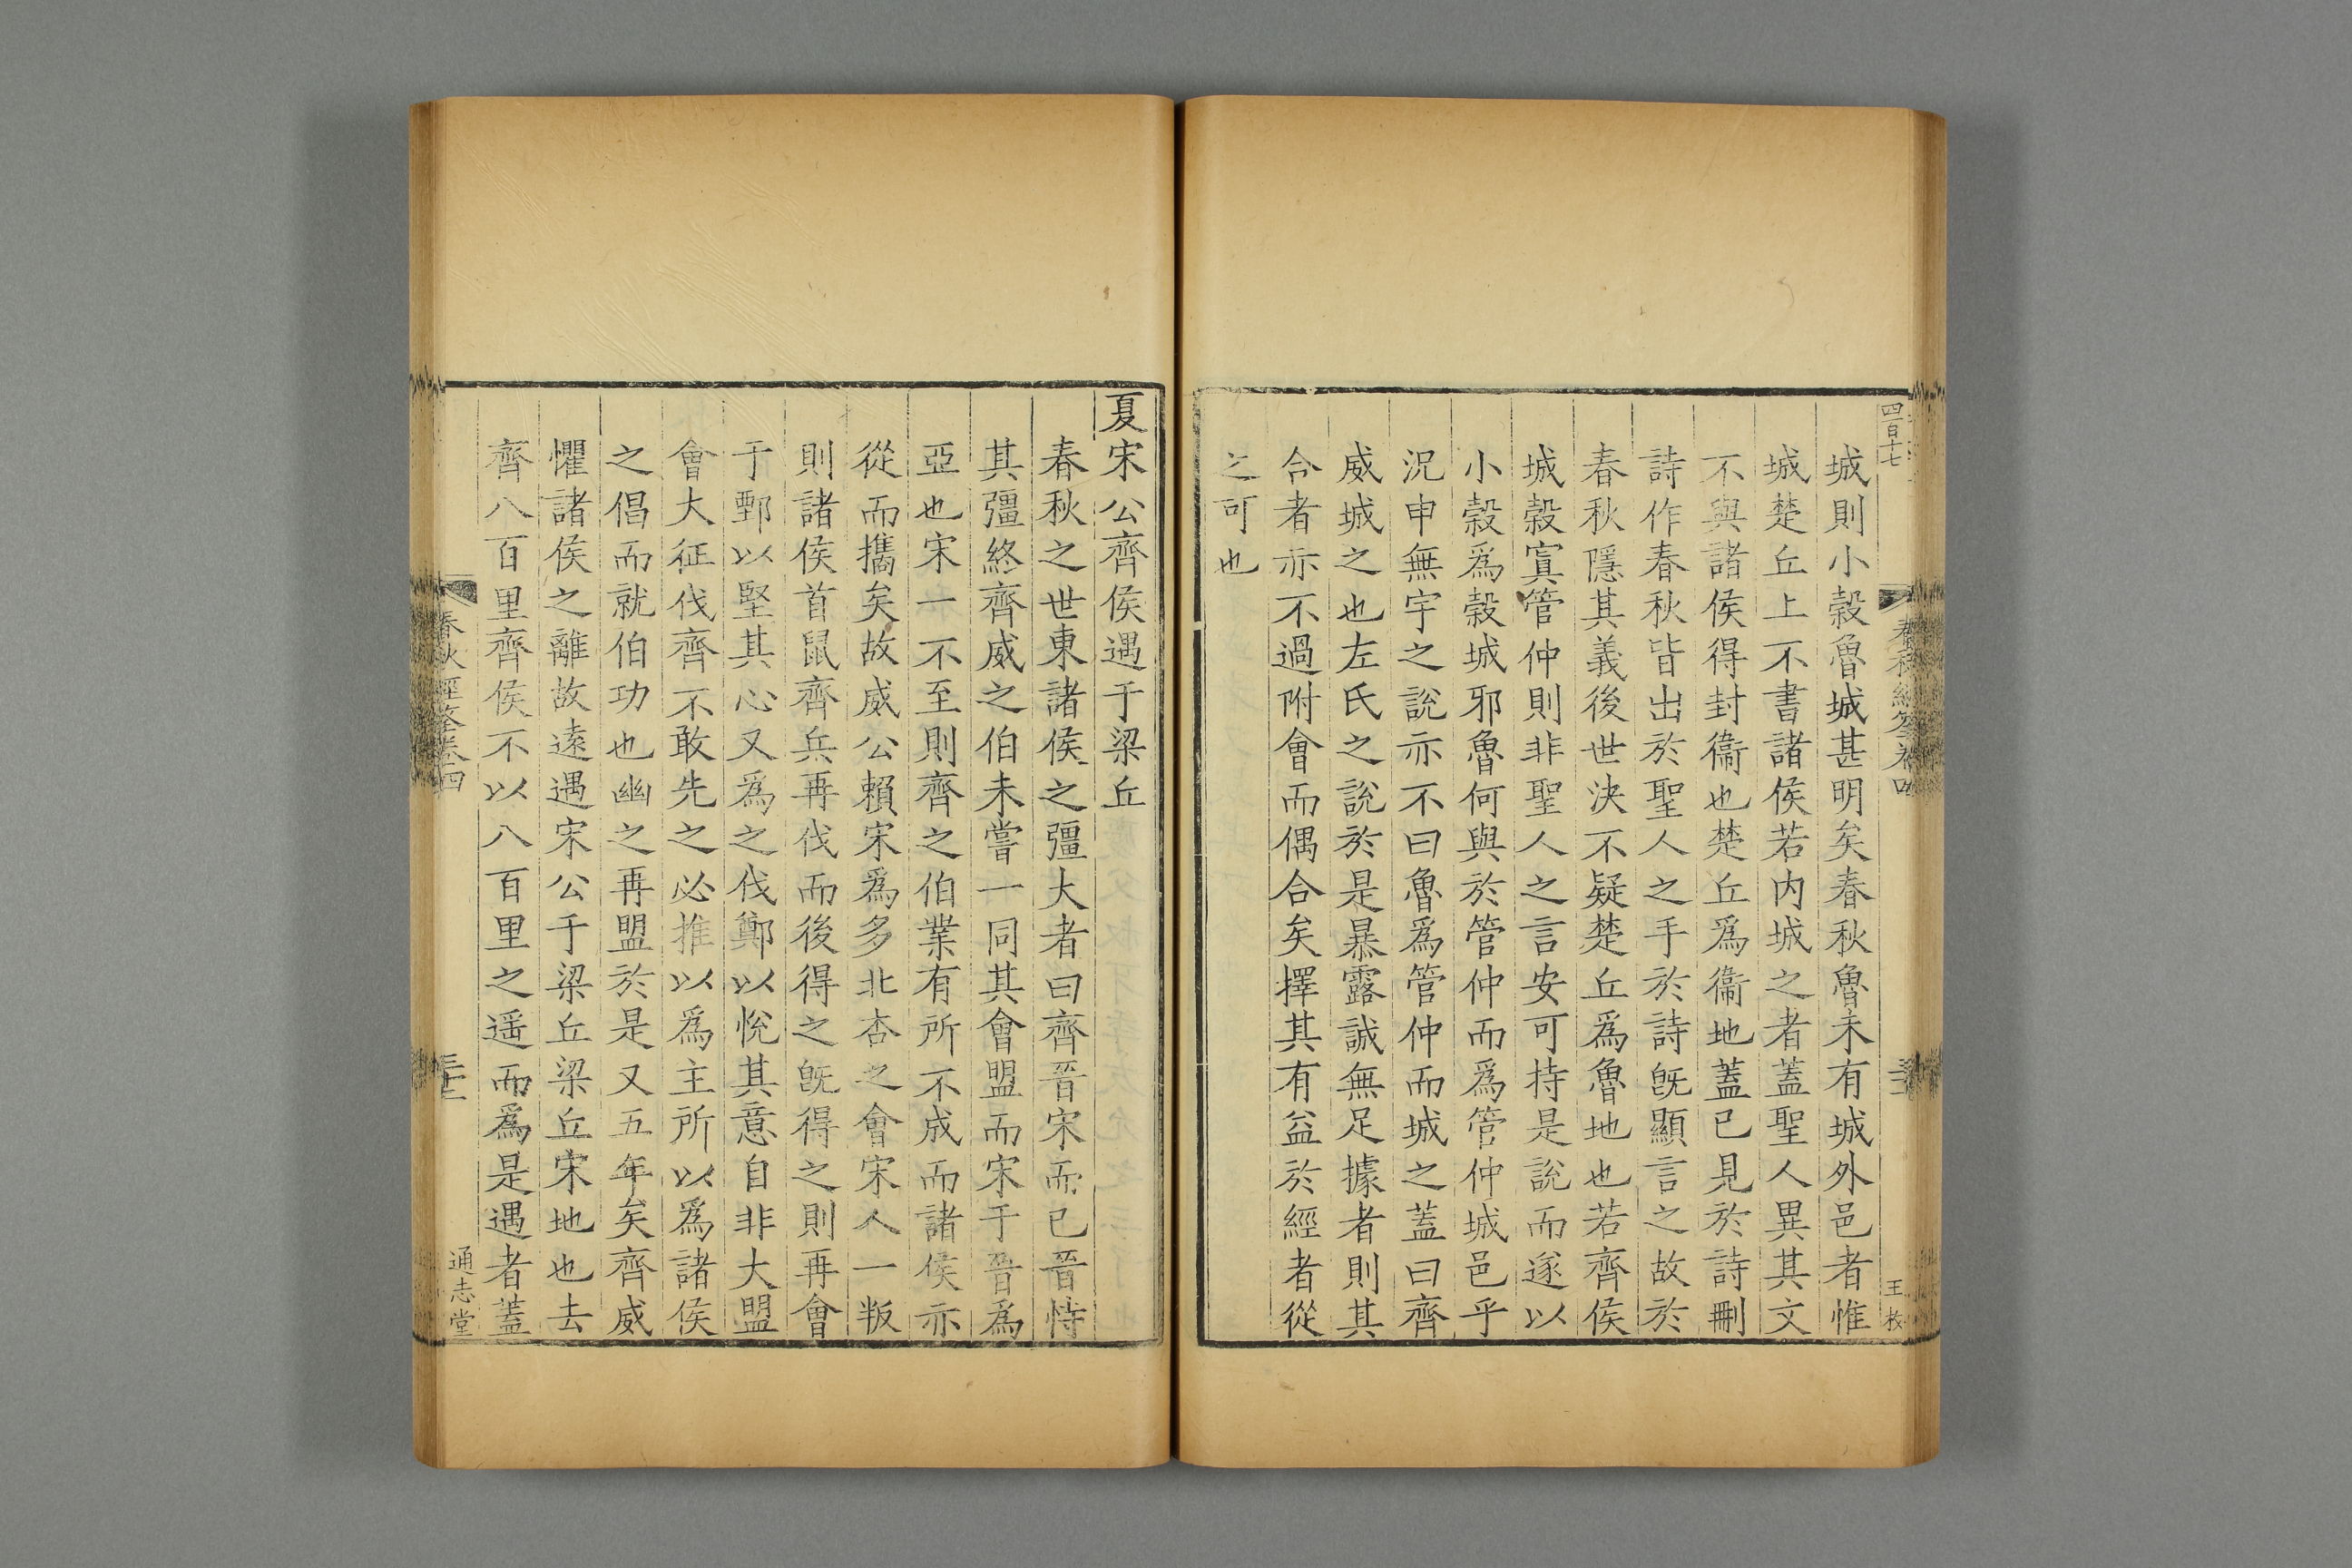 四百十七
春秋經筌卷四
王核
城則小榖魯城甚明矣春秋魯未有城外邑者惟
城楚丘上不書諸侯若内城之者蓋聖人異其文
不與諸侯得封衞也楚丘爲衞地蓋已見於詩刪
詩作春秋皆出於聖人之手於詩旣顯言之故於
春秋隱其義後世決不疑楚丘爲魯地也若齊侯
城榖寘管仲則非聖人之言安可持是說而遂以
小榖爲榖城邪魯何與於管仲而爲管仲城邑乎
況申無宇之說亦不曰魯爲管仲而城之蓋曰齊
威城之也左氏之說於是暴露誠無足據者則其
合者亦不過附會而偶合矣擇其有益於經者從
之可也
夏宋公齊侯遇于梁丘
春秋之世東諸侯之彊大者曰齊晉宋而已晉恃
其彊終齊威之伯未嘗一同其會盟而宋于晉爲
亞也宋一不至則齊之伯業有所不成而諸侯亦
從而攜矣故威公賴宋爲多北杏之會宋人一叛
則諸侯首鼠齊兵再伐而後得之旣得之則再會
于鄄以堅其心又爲之伐鄭以悅其意自非大盟
會大征伐齊不敢先之必推以爲主所以爲諸侯
之倡而就伯功也幽之再盟於是又五年矣齊威
懼諸侯之離故遠遇宋公于梁丘梁丘宋地也去
齊八百里齊侯不以八百里之遥而爲是遇者蓋
春秋經筌卷四
通志堂